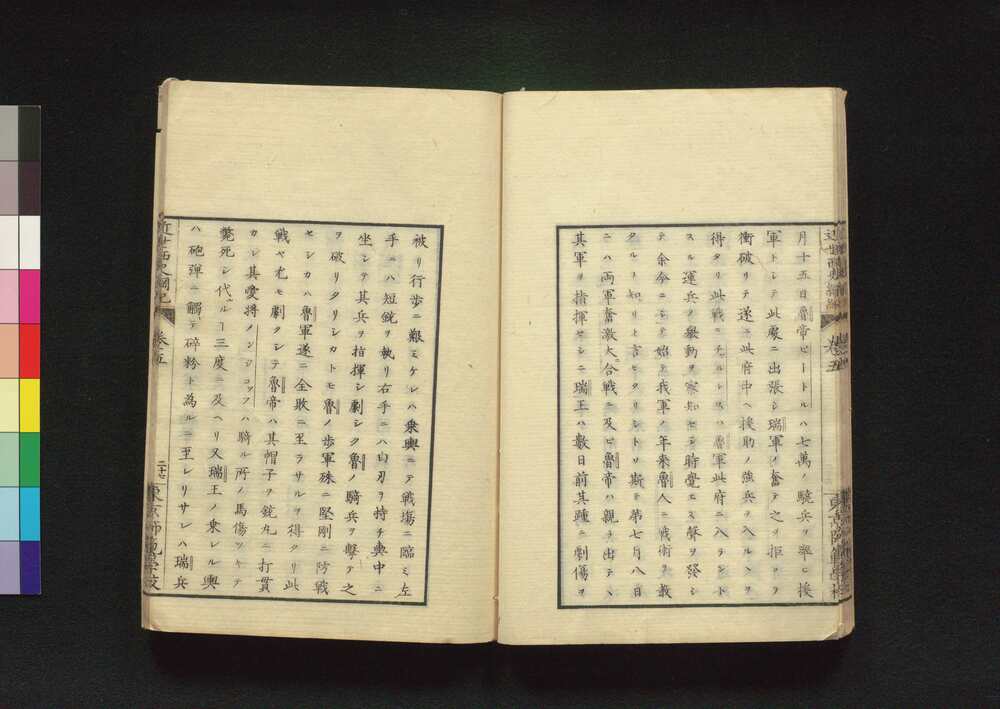 月十五日魯帝ピートルハ七萬ノ驍兵ヲ率ヒ援
軍トシテ此處ニ出張シ瑞軍ノ奮テ之ヲ拒クヲ
衝破リテ遂ニ此府中ヘ援助ノ強兵ヲ入ルヽヲ
得タリ此戰ニチルレスハ魯軍此府ニ入ラント
スル運兵ノ擧動ヲ察知セシ時覺エス聲ヲ發シ
テ余今ニシテ始テ我軍ノ年來魯人ニ戰術ヲ敎
タルヲ知リト言ヒタリシトソ斯テ第七月八日
ニハ兩軍奮激大合戰ニ及ヒ魯帝ハ親ラ出テヽ
其軍ヲ指揮セシニ瑞王ハ數日前其踵ニ劇傷ヲ
被リ行歩ニ艱ミケレハ乗輿ニテ戰塲ニ臨ミ左
手ニハ短銃ヲ執リ右手ニハ白刃ヲ持チ輿中ニ
坐シテ其兵ヲ指揮シ劇シク魯ノ騎兵ヲ擊テ之
ヲ破リタリシカトモ魯ノ歩軍殊ニ堅剛ニ防戰
セシカハ魯軍遂ニ全敗ニ至ラサルヲ得タリ此
戰ヤ尤モ劇クシテ魯帝ハ其帽子ヲ銃丸ニ打貫
カレ其愛將メンジコッフハ騎ル所ノ馬傷ツキテ
斃死シ代ルヿ三度ニ及ヘリ又瑞王ノ乗レル輿
ハ砲彈ニ觸テ碎粉ト為ルニ至レリサレハ瑞兵
近世西史綱紀 卷五 二十七 東京師範學校